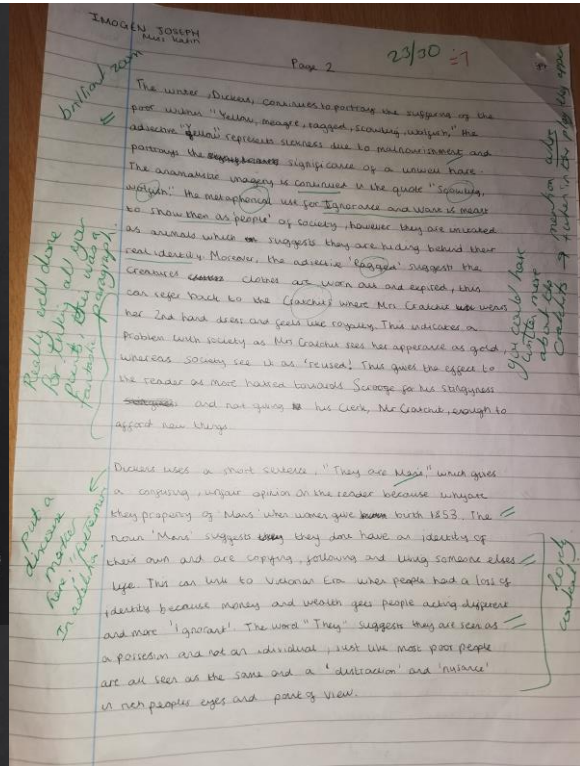 IMOGEN JOSEPH
Page 2
23/30 = 7
brilliant zoom
The writer, Dickens, continues to portray the suffering of the
poor within "Yellow, meagre, ragged, scowling, wolfish," the
adjective "Yellow" represents sickness due to malnourishment and
portrays the significance of a unwell have.
The animalistic imagery is continued in the quote "Scowling,
wolfish." the metaphorical use for Ignorance and Want is meant
to show them as 'people' of society, however they are unmasked
as animals which suggests they are hiding behind their
real identity. Moreover, the adjective 'Ragged' suggest the
creatures clothes are worn out and expired, this
can refer back to the Cratchits where Mrs Cratchit wears
her 2nd hand dress and feels like royalty. This indicates a
Problem with society as Mrs Cratchit sees her apperance as gold,
whereas society see it as 'reused'! This gives the effect to
the reader as more hatred towards Scrooge for his stingyness
and not giving his clerk, Mr Cratchit, enough to
afford new things.
Really well done
for taking all your
points this was a
fantastic paragraph.
you could have
written more
about the
Cratchits → mention other
Dickens uses a short sentence, "They are Mans," which gives
a confusing, unfair opinion on the reader because
they property of 'Mans' when women give birth 1853. The
noun 'Mans' suggests they dont have an identity of
their own and are copying, following and living someone elses
life. This can link to Victorian Era when people had a loss of
identity because money and wealth gets people acting different
and more 'ignorant'. The word "They" suggests they are seen as
a possesion and not an individual, just like most poor people
are all seen as the same and a 'distraction' and 'nuisance'
in rich peoples eyes and point of view.
Put a
discourse
marker
here: Furthermore
In addition
lovely
context!